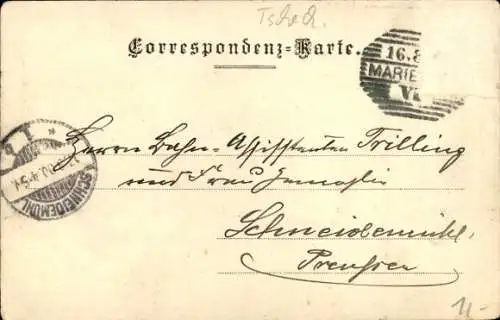 Tschech.
Correspondenz-Karte.
16.8
MARIE
VI
SCHNEIDEMÜHL
Herrn Bahn-Assistenten Trilling
und Frau Gemahlin
Schneidemühl.
Preußen
11-